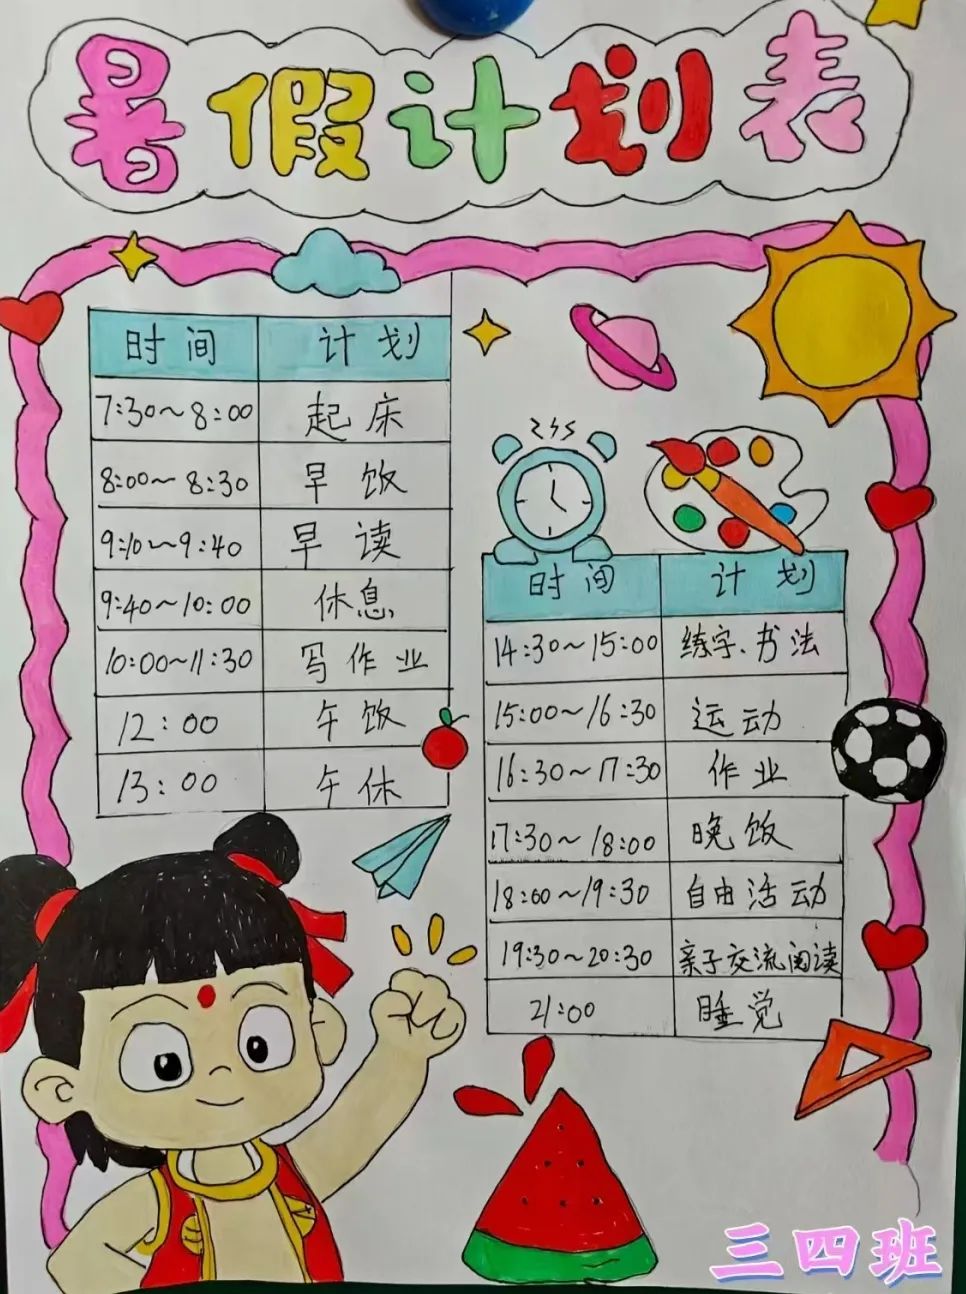 暑假计划表
时间 计划
7:30~8:00 起床
8:00~8:30 早饭
9:10~9:40 早读
9:40~10:00 休息
10:00~11:30 写作业
12:00 午饭
13:00 午休
时间 计划
14:30~15:00 练字、书法
15:00~16:30 运动
16:30~17:30 作业
17:30~18:00 晚饭
18:00~19:30 自由活动
19:30~20:30 亲子交流阅读
21:00 睡觉
三四班